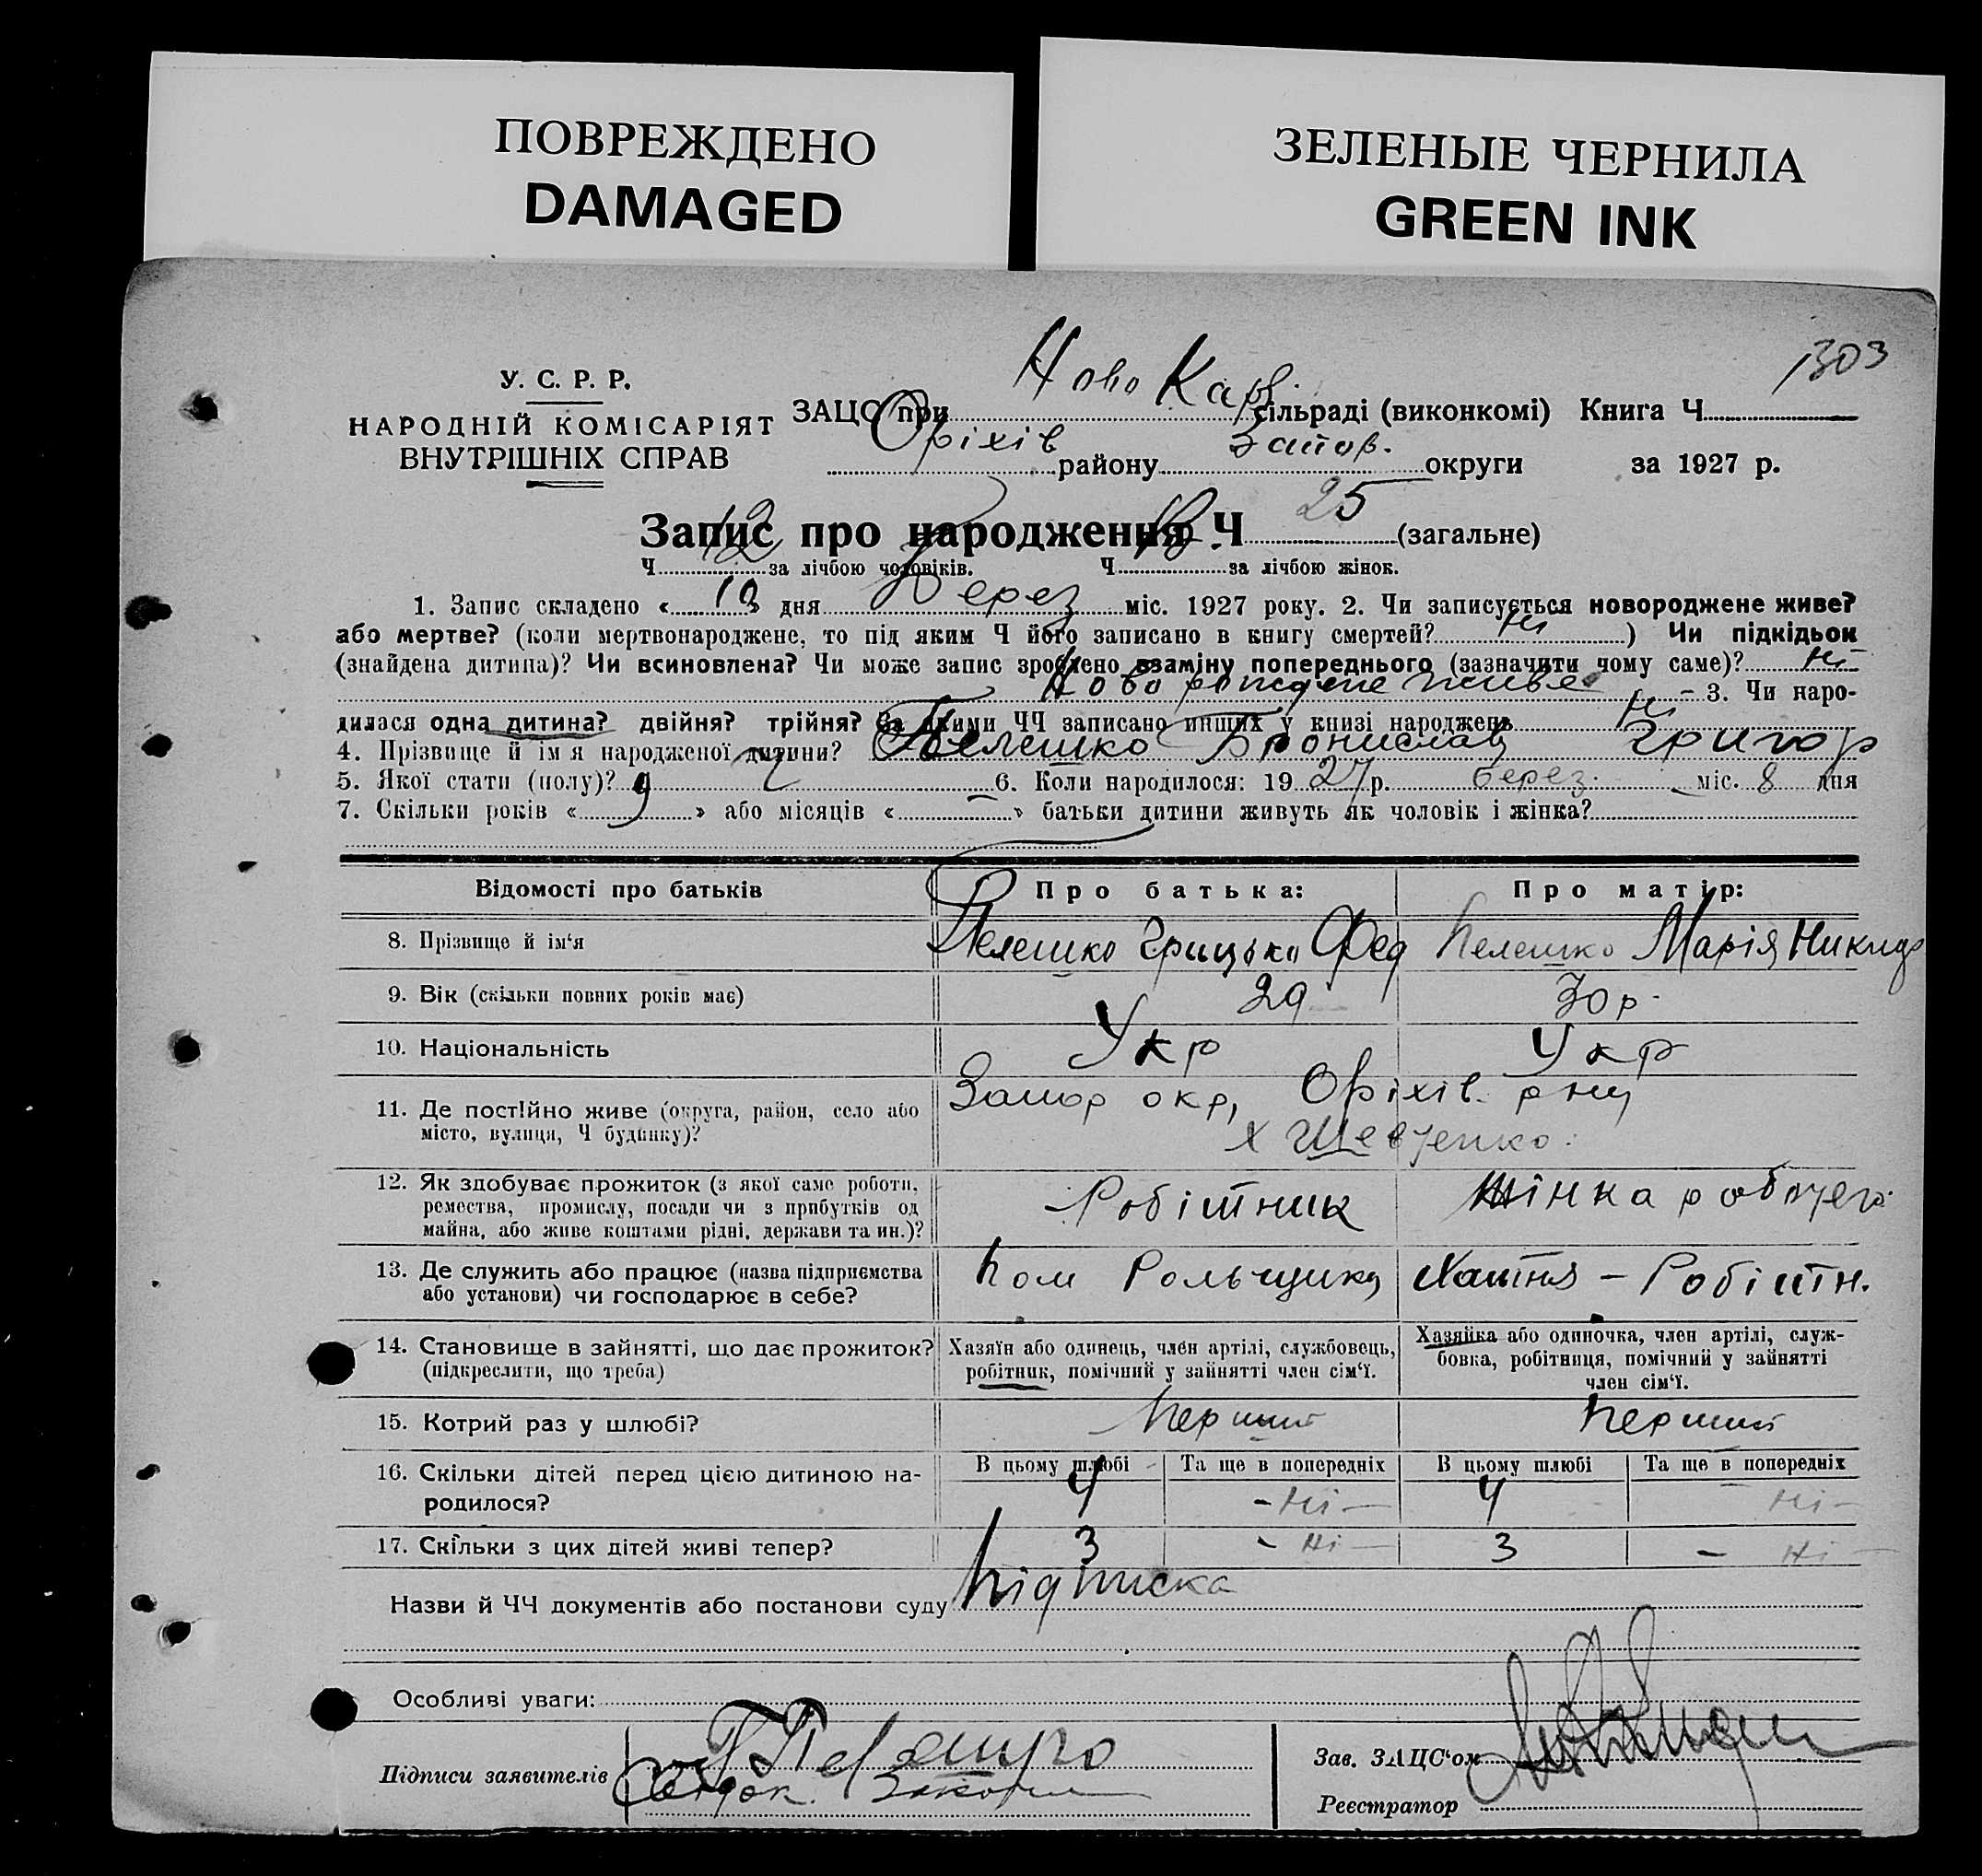 ПОВРЕЖДЕНО
DAMAGED
ЗЕЛЕНЫЕ ЧЕРНИЛА
GREEN INK
1303
У. С. Р. Р.
НАРОДНІЙ КОМІСАРІЯТ
ВНУТРІШНІХ СПРАВ
ЗАЦС при Ново Кар. сільраді (виконкомі) Книга Ч.
Оріхів району Запор. округи за 1927 р.
Запис про народження Ч 25 (загальне)
Ч 12 за лічбою чоловіків. Ч за лічбою жінок.
1. Запис складено « 10 » дня Берез міс. 1927 року. 2. Чи записується новороджене живе?
або мертве? (коли мертвонароджене, то під яким Ч його записано в книгу смертей? Ні ) Чи підкідьок
(знайдена дитина)? Чи всиновлена? Чи може запис зроблено взаміну попереднього (зазначити чому саме)? Ні
Новорождене живе 3. Чи наро-
дилася одна дитина? двійня? трійня? За якими ЧЧ записано инших у книзі народжень Ні
4. Прізвище й ім я народженої дитини? Пелешко Бронислав Григор
5. Якої стати (полу)? Ч 6. Коли народилося: 1927 р. берез. міс. 8 дня
7. Скільки років « 9 » або місяців « — » батьки дитини живуть як чоловік і жінка?
Відомості про батьків Про батька: Про матір:
8. Прізвище й ім‘я Пелешко Грицько Фед Пелешко Марія Никид
9. Вік (скільки повних років має) 29 30 р.
10. Національність Укр Укр
11. Де постійно живе (округа, район, село або Запор окр, Оріхів. рну
місто, вулиця, Ч будинку)? х Шевченко.
12. Як здобуває прожиток (з якої саме роботи,
ремества, промислу, посади чи з прибутків од Робітник Жінка робочего
майна, або живе коштами рідні, держави та ин.)?
13. Де служить або працює (назва підприємства Пом Рольщика Хатня – Робітн.
або установи) чи господарює в себе?
14. Становище в зайнятті, що дає прожиток?
(підкреслити, що треба)
Хазяїн або одинець, член артілі, службовець,
робітник, помічний у зайнятті член сім‘ї.
Хазяйка або одиночка, член артілі, служ-
бовка, робітниця, помічний у зайнятті
член сім‘ї.
15. Котрий раз у шлюбі? Перший Перший
В цьому шлюбі Та ще в попередніх В цьому шлюбі Та ще в попередніх
16. Скільки дітей перед цією дитиною на-
родилося? 4 - Ні — 4 - Ні -
17. Скільки з цих дітей живі тепер? 3 - Ні — 3 – Ні —
Назви й ЧЧ документів або постанови суду Підписка
Особливі уваги:
Підписи заявителів
Зав. ЗАЦС‘ом
Реєстратор